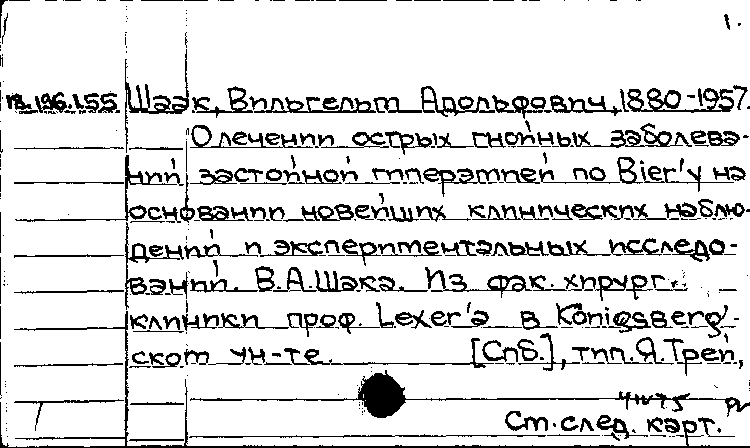 1.
18.196.1.55 Шаак, Вильгельм Адольфович, 1880-1957.
О лечении острых гнойных заболева-
ний застойной гиперэмией по Bier'у на
основании новейших клинических наблю-
дений и экспериментальных исследо-
ваний. В.А.Шака. Из фак. хирург.
клиники проф. Lexer'а в Königsberg'-
ском ун-те. [Спб.], тип. Я.Трей,
См. след. карт.